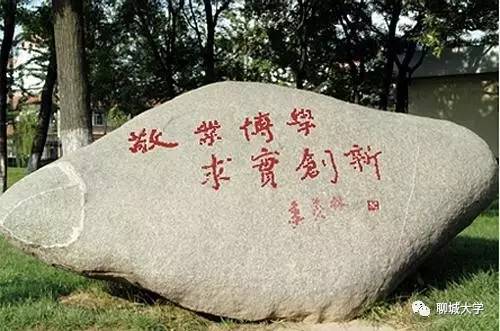 敬業博學
求實創新
季羨林
聊城大学